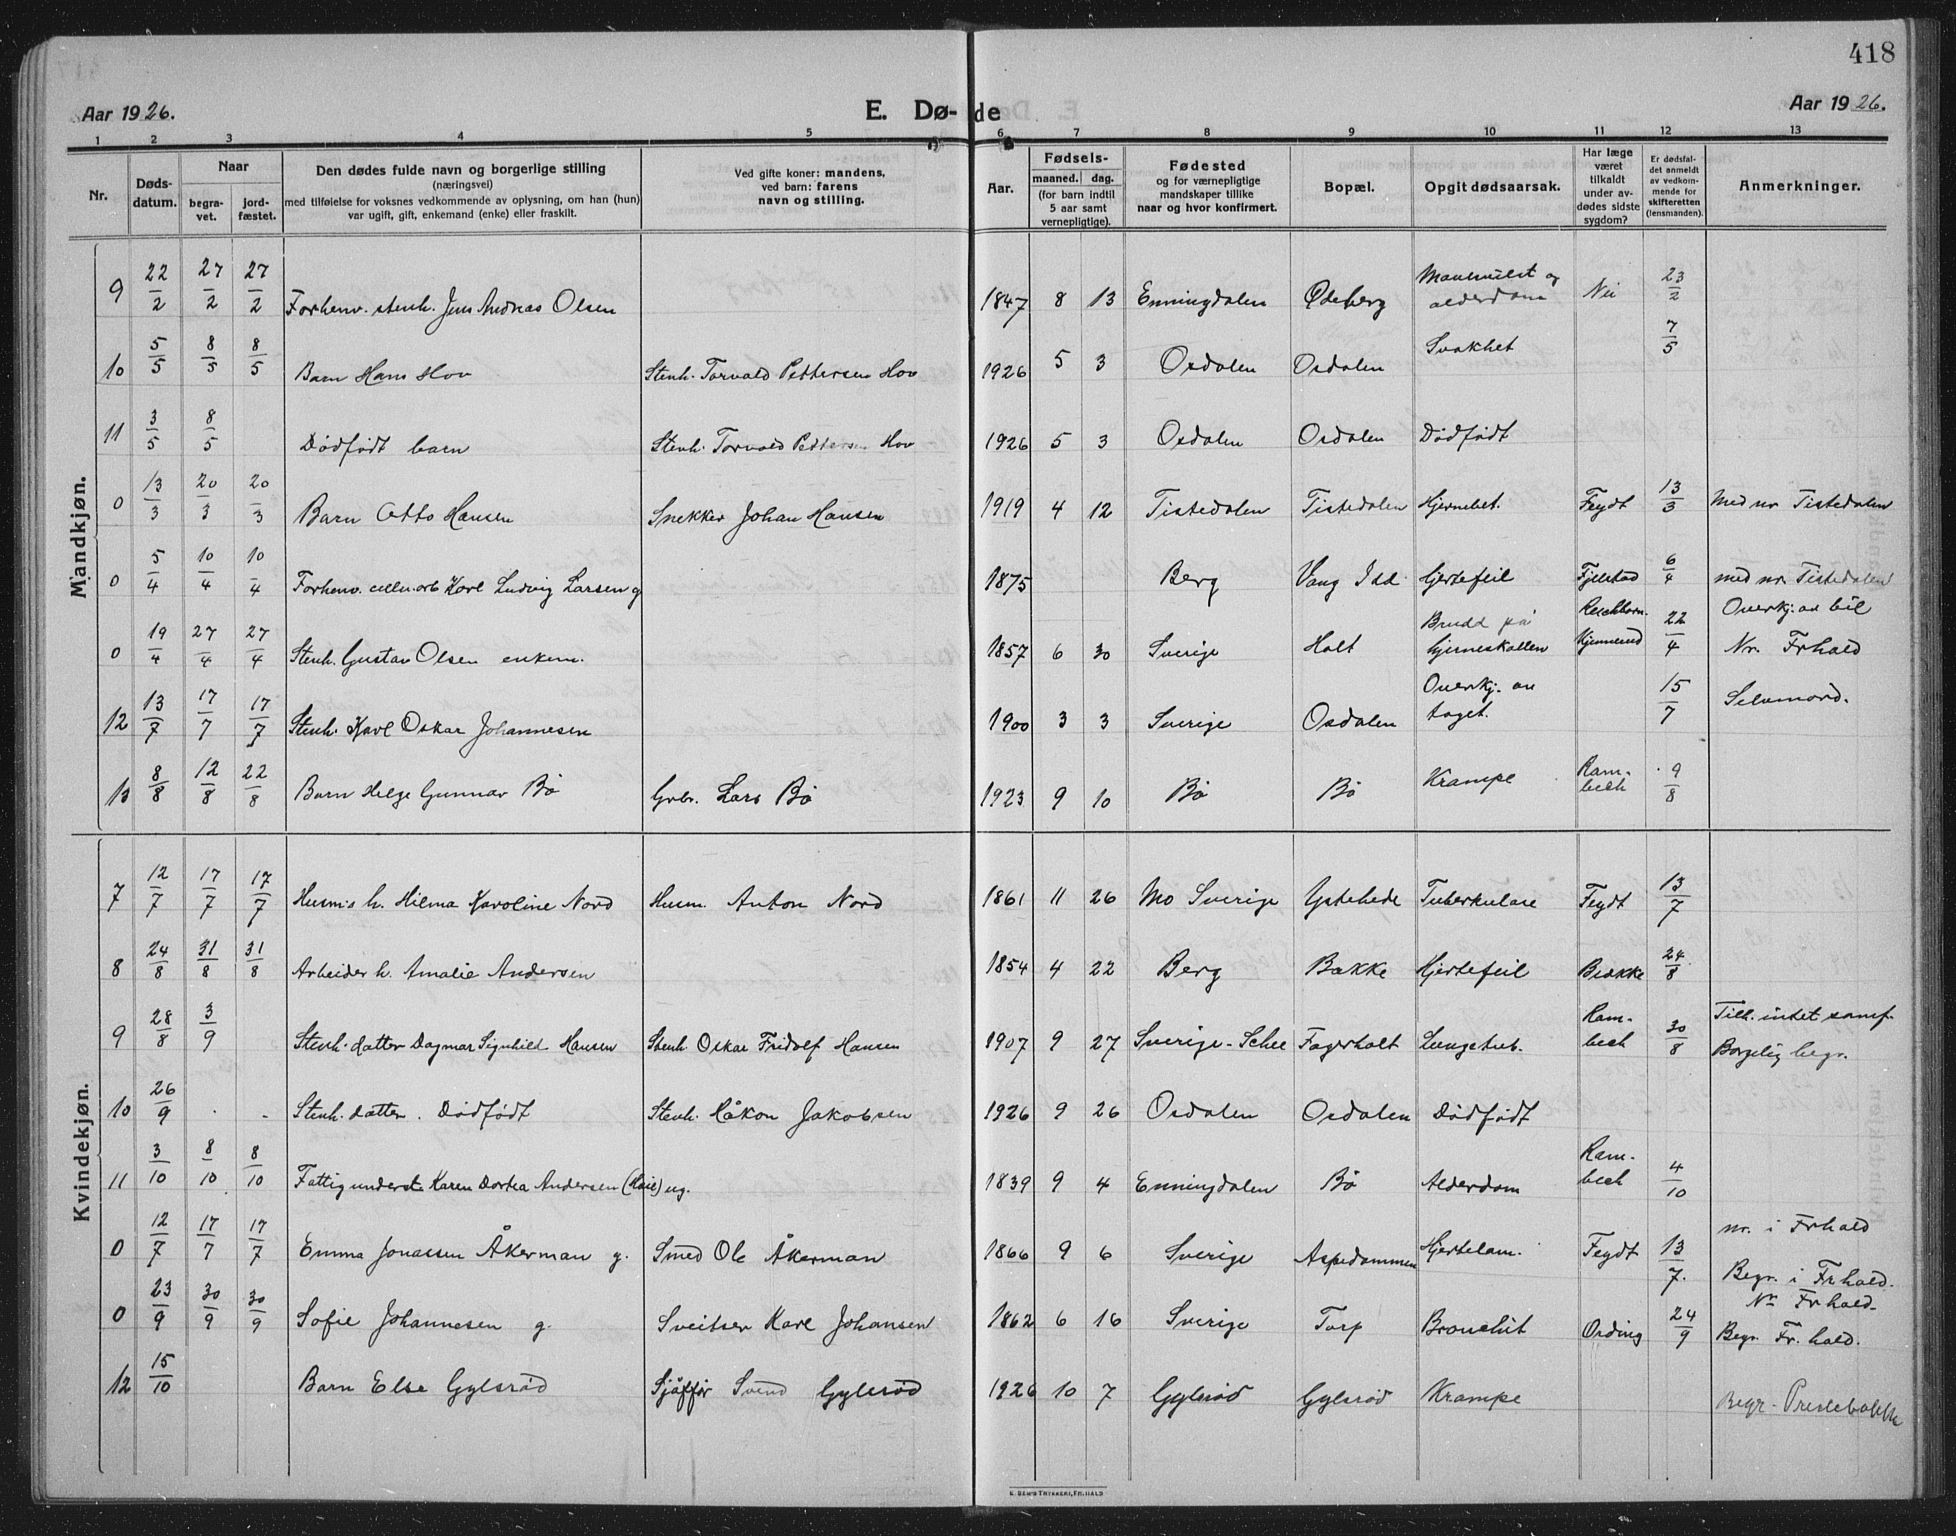 418
Aar 1926.
E. Dø-de
Aar 1926.
1 2 3 4 5 6 7 8 9 10 11 12 13
Nr.
Døds-
datum.
Naar
begra-
vet.
jord-
fæstet.
Den dødes fulde navn og borgerlige stilling
(næringsvei)
med tilføielse for voksnes vedkommende av oplysning, om han (hun)
var ugift, gift, enkemand (enke) eller fraskilt.
Ved gifte koner: mandens,
ved barn: farens
navn og stilling.
Aar.
Fødsels-
maaned. dag.
(for barn indtil
5 aar samt
vernepligtige).
Fødested
og for værnepligtige
mandskaper tillike
naar og hvor konfirmert.
Bopæl.
Opgit dødsaarsak.
Har læge
været
tilkaldt
under av-
dødes sidste
sygdom?
Er dødsfal-
det anmeldt
av vedkom-
mende for
skifteretten
(lensmanden).
Anmerkninger.
Mandkjøn.
9 22/2 27/2 27/2 Forhenv. stenh. Jens Andreas Olsen 1847 8 13 Enningdalen Ødeberg og alderdom Nei 23/2
10 5/5 8/5 8/5 Barn Hans Hov Stenh. Torvald Pettersen Hov 1926 5 3 Osdalen Osdalen Svakhet 7/5
11 3/5 8/5 Dødfødt barn Stenh. Torvald Pettersen Hov 1926 5 3 Osdalen Osdalen Dødfødt
0 13/3 20/3 20/3 Barn Otto Hansen Snekker Johan Hansen 1919 4 12 Tistedalen Tistedalen Hjernebet. Feydt 13/3 Med nr. Tistedalen
0 5/4 10/4 10/4 Forhenv. cellu.arb Karl Ludvig Larsen g 1875 Berg Vang Idd hjertefeil Fjelstad 6/4 med nr. Tistedalen
0 19/4 27/4 27/4 Stenh. Gustav Olsen enkem. 1857 6 30 Sverige Holt Brudd på hjerneskallen 22/4 Overkj. av bil
Nr. Frhald
12 13/7 17/7 17/7 Stenh. Karl Oskar Johannesen 1900 3 3 Sverige Osdalen Overkj. av toget. 15/7 Selvmord.
13 8/8 12/8 22/8 Barn Helge Gunnar Bø Grbr. Lars Bø 1923 9 10 Bø Bø Krampe Ram-
bech 9/8
Kvindekjøn.
7 12/7 17/7 17/7 Husm.s h. Hilma Karoline Nord Husm. Anton Nord 1861 11 26 Mo Sverige Ystehede Tuberkulose Feydt 13/7
8 24/8 31/8 31/8 Arbeider h. Amalie Andersen 1854 4 22 Berg Bakke Hjertefeil Bakke 24/8
9 28/8 3/9 Stenh. datter Dagmar Signhild Hansen Stenh Oskar Fridolf Hansen 1907 9 27 Sverige-Schee Fagerholt Lungetub. Ram-
bech 30/8 Tilh. intet samf.
Borgelig begr.
10 26/9 . - Stenh. datter. Dødfødt Stenh. Håkon Jakobsen 1926 9 26 Osdalen Osdalen Dødfødt
11 3/10 8/10 8/10 Fattigunderst. Karen Dortea Andersen ug. 1839 9 4 Enningdalen Bø Alderdom Ram-
bech 4/10
0 12/7 17/7 17/7 Emma Jonassen Åkerman g. Smed Ole Åkerman 1866 9 6 Sverige Aspedammen Hjertelam. Feydt 13/7. nr. i Frhald
Begr. i Frhald.
0 23/9 30/9 30/9 Sofie Johannesen g. Sveitser Karl Johansen 1862 6 16 Sverige Torp Bronchit Ording 24/9 Nr Frhald.
Begr. Fr.hald.
12 15/10 Barn Else Gylsrød Sjåffør Svend Gylsrød 1926 10 7 Gylsrød Gylsrød Krampe Begr. Prestebakke
E. SEM'S TRYKKERI, FR.HALD